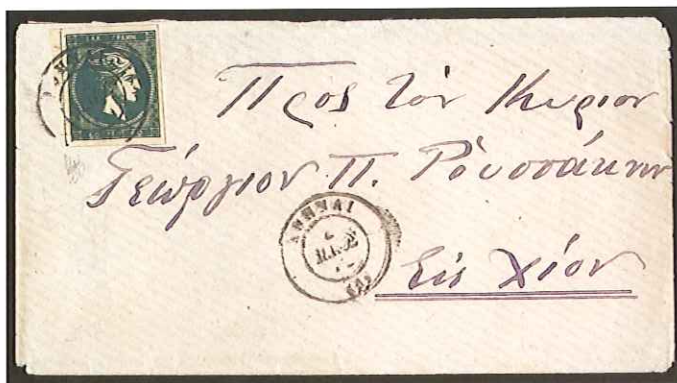 Προς τον Κυριον
Γεώργιον Π. Ρουσσάκην
ΑΘΗΝΑΙ
Εις Χίον